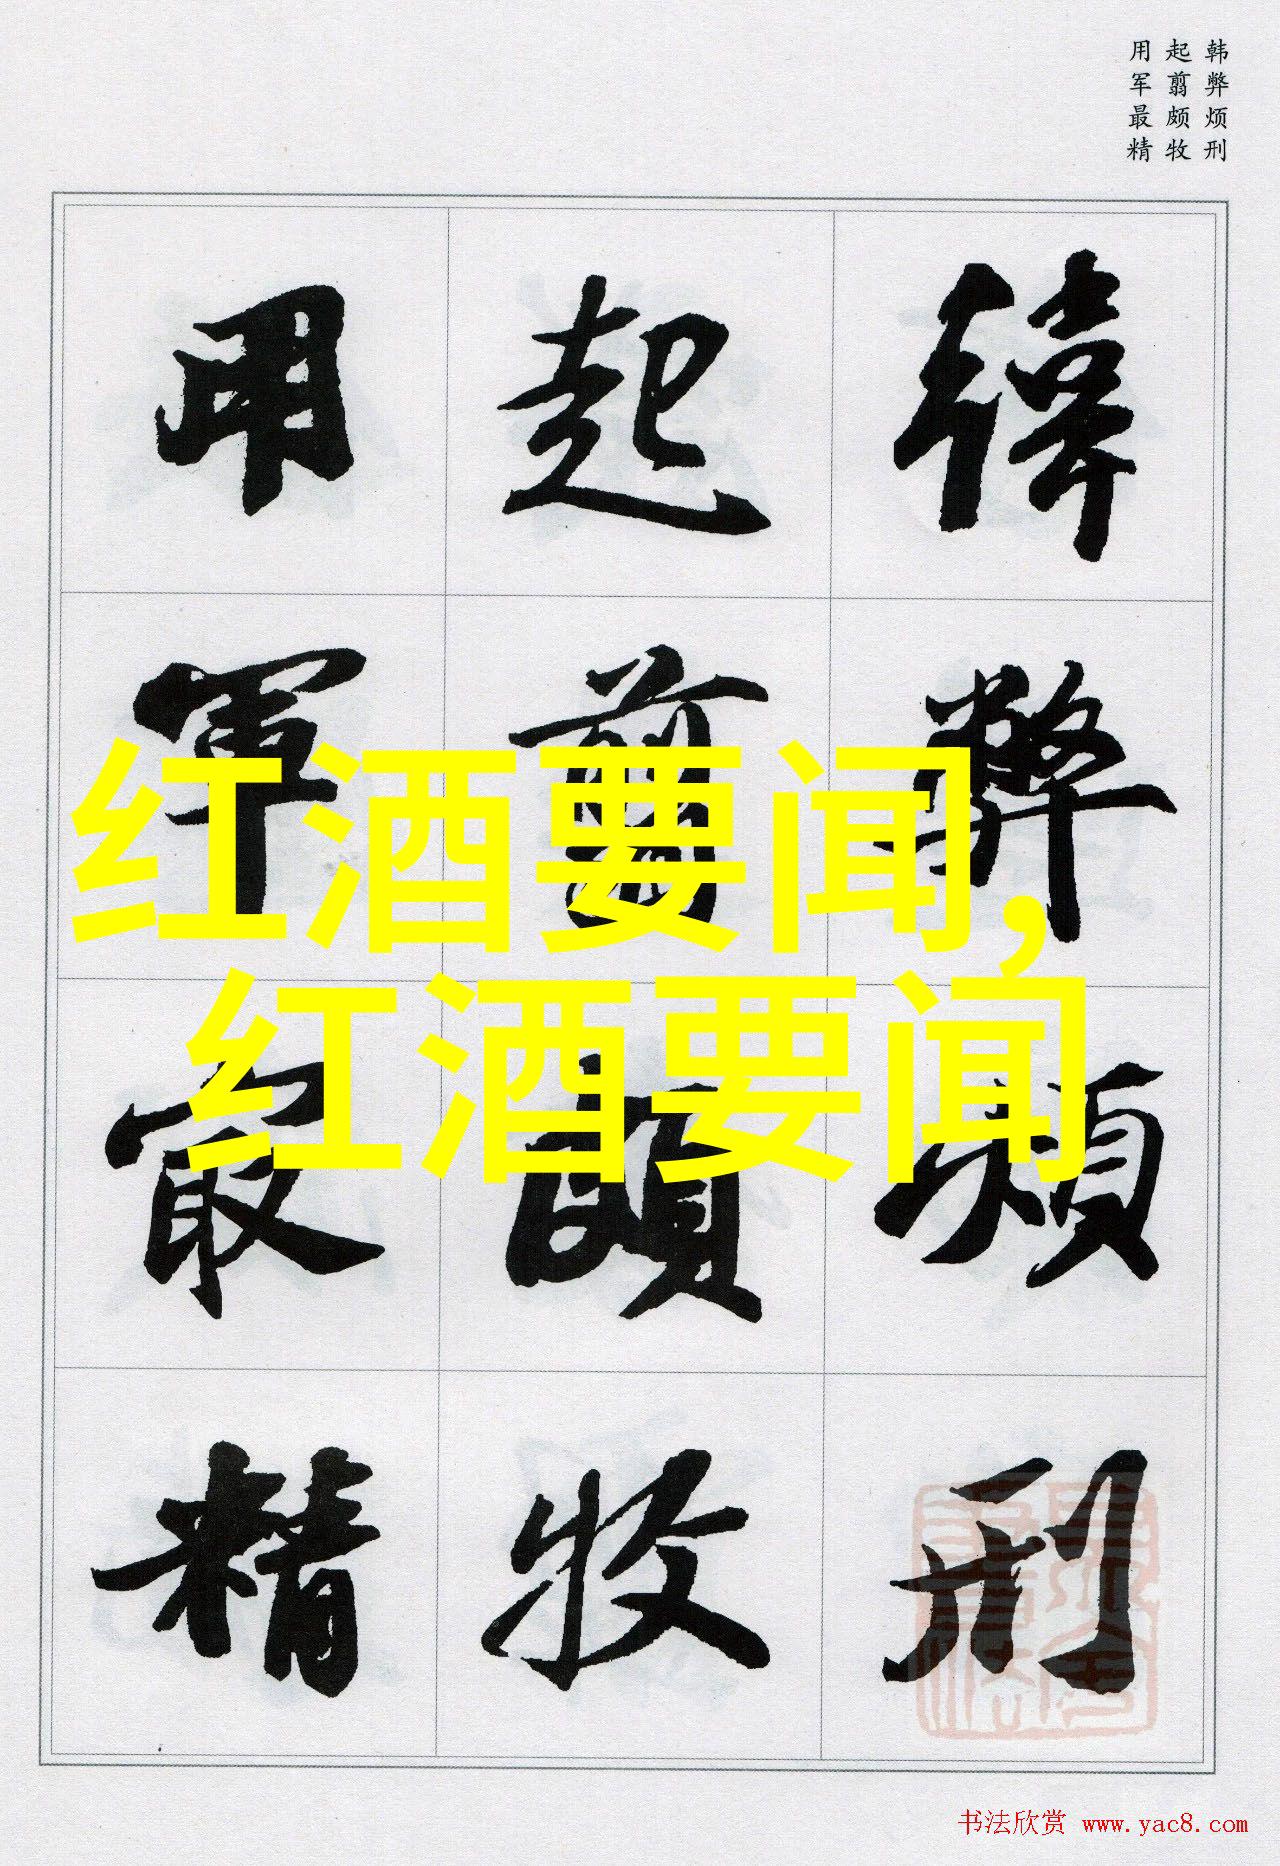 韩弊烦刑
起翦颇牧
用军最精
韓弊煩刑
起翦頗牧
用軍最精
红酒要闻,
红酒要闻
书法欣赏 www.yac8.com